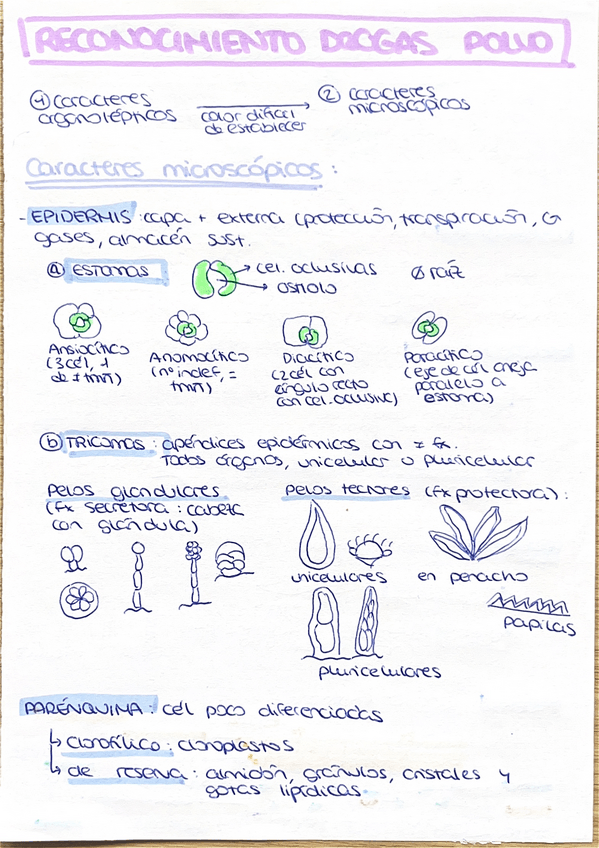 RECONOCIMIENTO DROGAS POLVO
① caracteres organolépticos
color difícil de establecer
② caracteres microscópicos
Caracteres microscópicos:
- EPIDERMIS: capa + externa (protección, transpiración,
gases, almacén sust.
ⓐ ESTOMAS
cel. oclusivas
ostiolo
Ø raíz
Anisocítico
(3 cél, 1
de ≠ tmñ)
Anomocítico
(nº indef, =
tmñ)
Diacítico
(2 cél con
ángulo recto
con cel. oclusiva)
Paracítico
(eje de cél aneja
paralelo a
estoma)
ⓑ TRICOMAS: apéndices epidérmicos con ≠ fx.
Todos órganos, unicelular o pluricelular
Pelos glandulares
(fx secretora: cabeza
con glándula)
Pelos tectores (fx protectora):
unicelulares
en penacho
pluricelulares
papilas
PARÉNQUIMA: cél poco diferenciadas
↳ clorofílico: cloroplastos
↳ de reserva: almidón, gránulos, cristales y
gotas lipídicas.